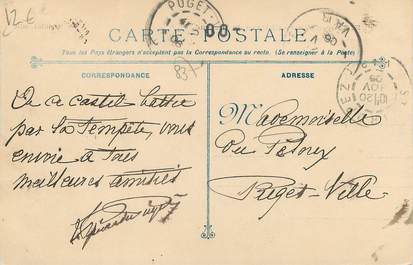 12 €
PUGET
CARTE POSTALE
Tous les Pays étrangers n'acceptent pas la Correspondance au recto. (Se renseigner à la Poste)
VAR
83
CORRESPONDANCE
ADRESSE
De ce castel battu
par la Tempête, vous
envoie à tous
meilleures amitiés
Mademoiselle
Puget-Ville